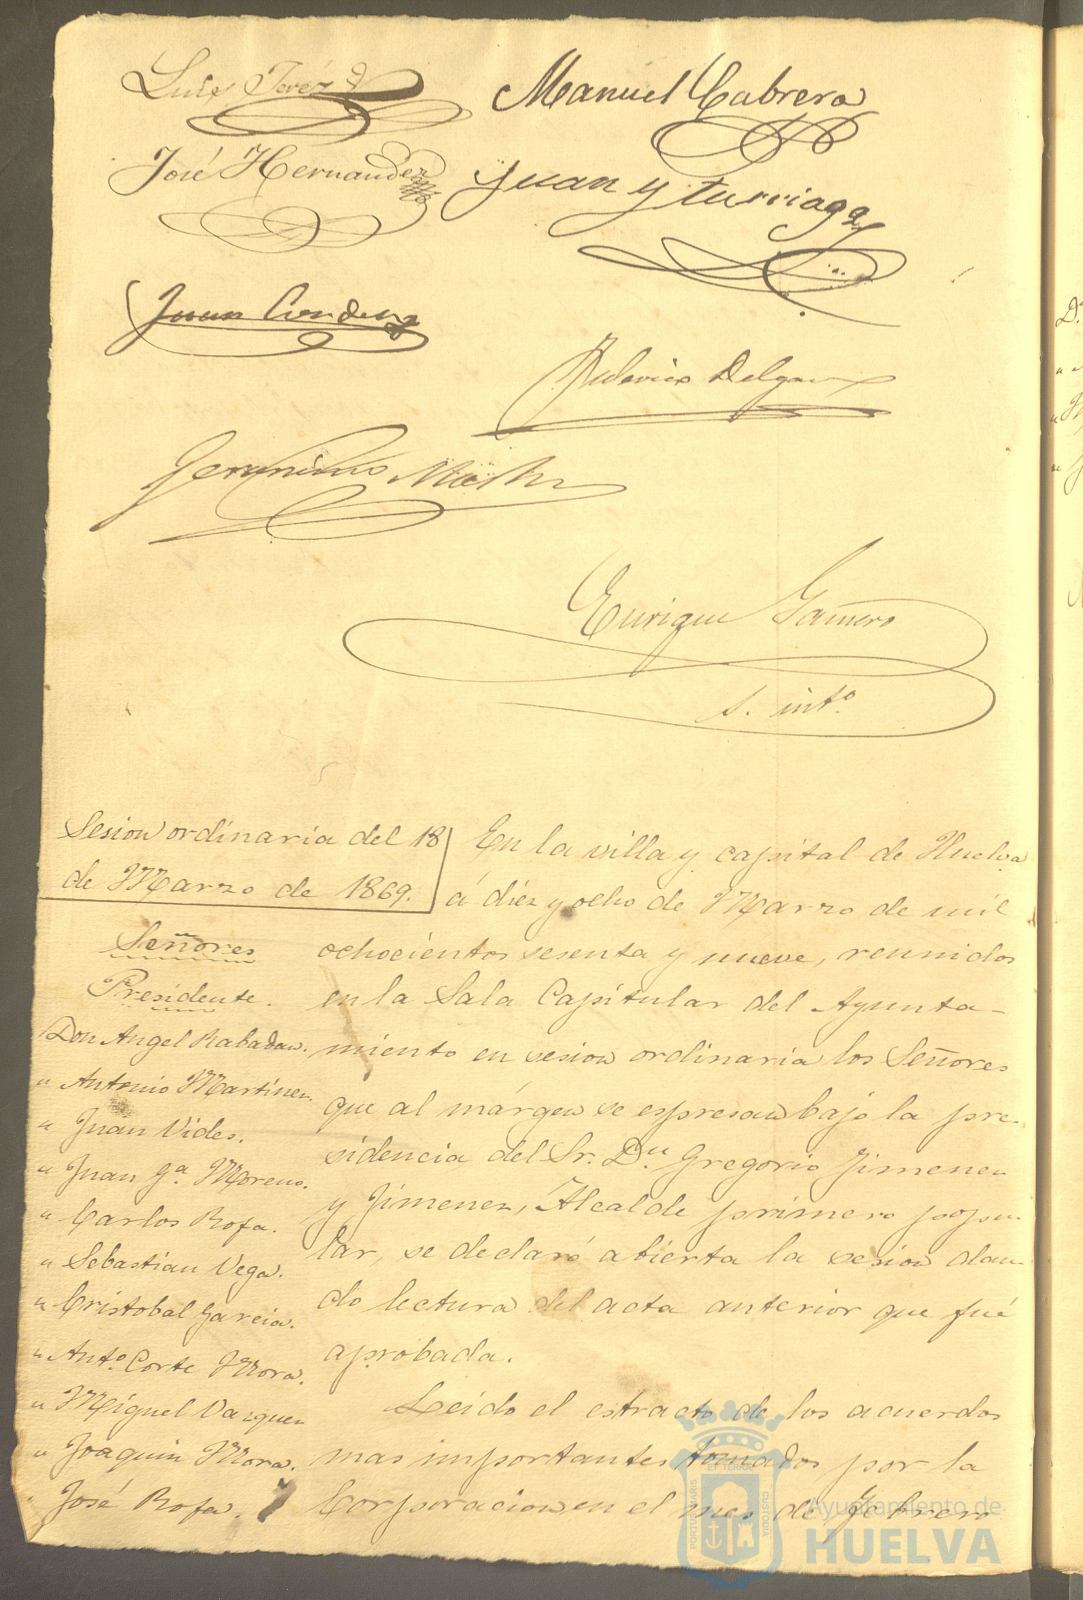 Luis Jerez
Manuel Cabrera
José Hernandez
Juan Yturriaga
Juan
Federico Delgado
Jeronimo Martin
Enrique Gamero
S. intº
Sesion ordinaria del 18
de Marzo de 1869.
Señores
Presidente.
Don Angel Rabadan.
" Antonio Martinez
" Juan Vides.
" Juan Gª Moreno.
" Carlos Rofa.
" Sebastian Vega.
" Cristobal Garcia.
" Antº Corte Mora.
" Miguel Vazquez
" Joaquin Mora.
" José Rofa.
En la villa y capital de Huelva
á diez y ocho de Marzo de mil
ochocientos sesenta y nueve, reunidos
en la Sala Capitular del Ayunta-
miento en sesion ordinaria los Señores
que al márgen se espresan bajo la pre-
sidencia del Sr. Dn Gregorio Jimenez
y Jimenez, Alcalde primero popu-
lar, se declaró abierta la sesion dan-
do lectura del acta anterior que fué
aprobada.
Leido el estracto de los acuerdos
mas importantes tomados por la
Corporacion en el mes de Febrero
PORTUS MARIS
ET TERRÆ
CUSTODIA
Ayuntamiento de
HUELVA